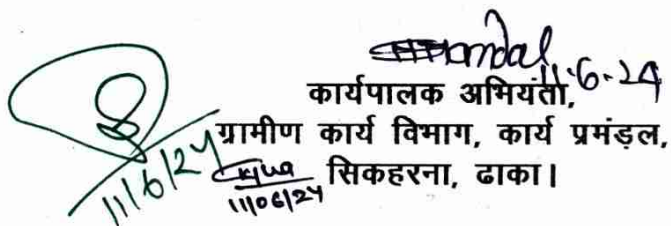 11.6.24
कार्यपालक अभियंता,
ग्रामीण कार्य विभाग, कार्य प्रमंडल,
11/6/24
सिकहरना, ढाका।
11/06/24